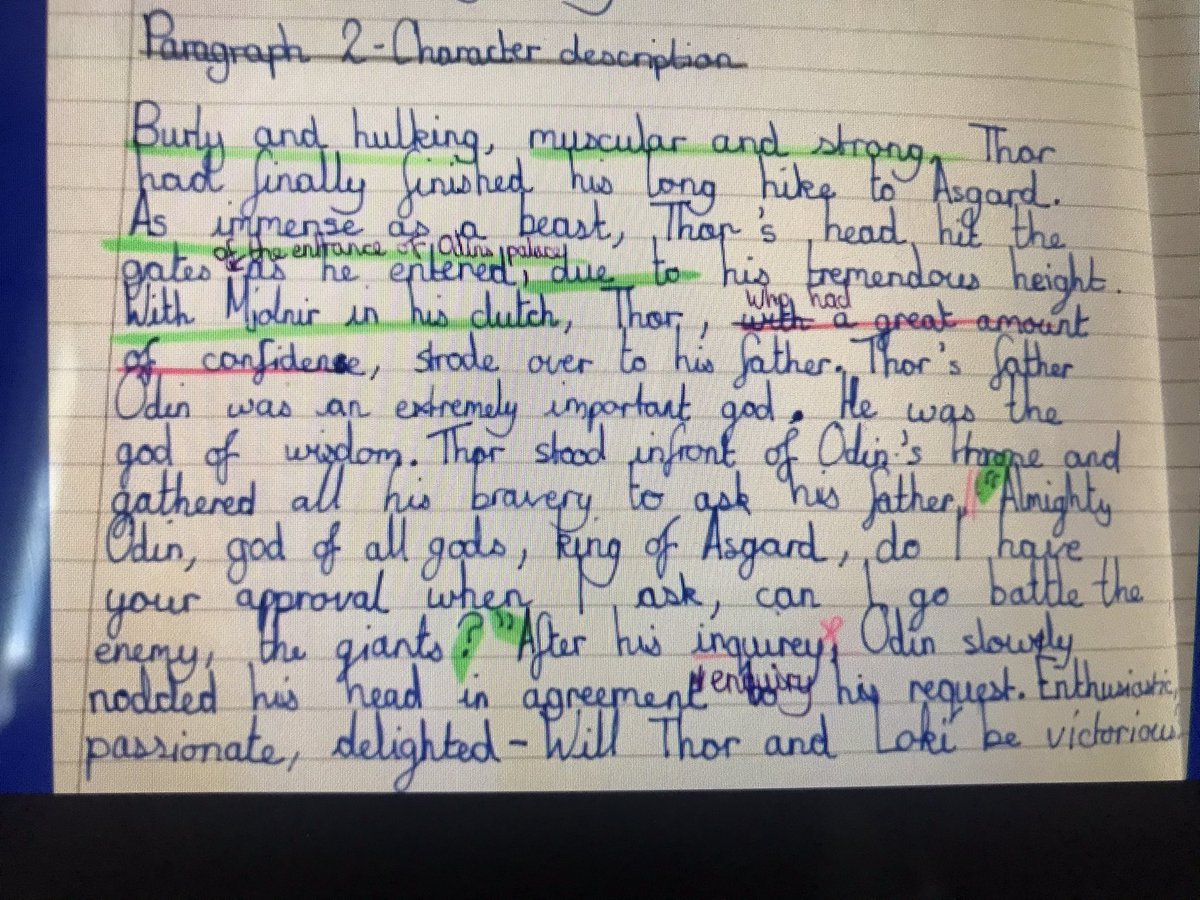 Paragraph 2 - Character description
Burly and hulking, muscular and strong, Thor
had finally finished his long hike to Asgard.
As immense as a beast, Thor's head hit the
of the entrance of Odins palace
gates as he entered, due to his tremendous height.
who had
With Mjolnir in his clutch, Thor, with a great amount
of confidence, strode over to his father. Thor's father
Odin was an extremely important god. He was the
god of wisdom. Thor stood infront of Odin's throne and
gathered all his bravery to ask his father, "Almighty
Odin, god of all gods, king of Asgard, do I have
your approval when I ask, can I go battle the
enemy, the giants?" After his inquirey, Odin slowly
enquiry
nodded his head in agreement to his request. Enthusiastic,
passionate, delighted - Will Thor and Loki be victorious?